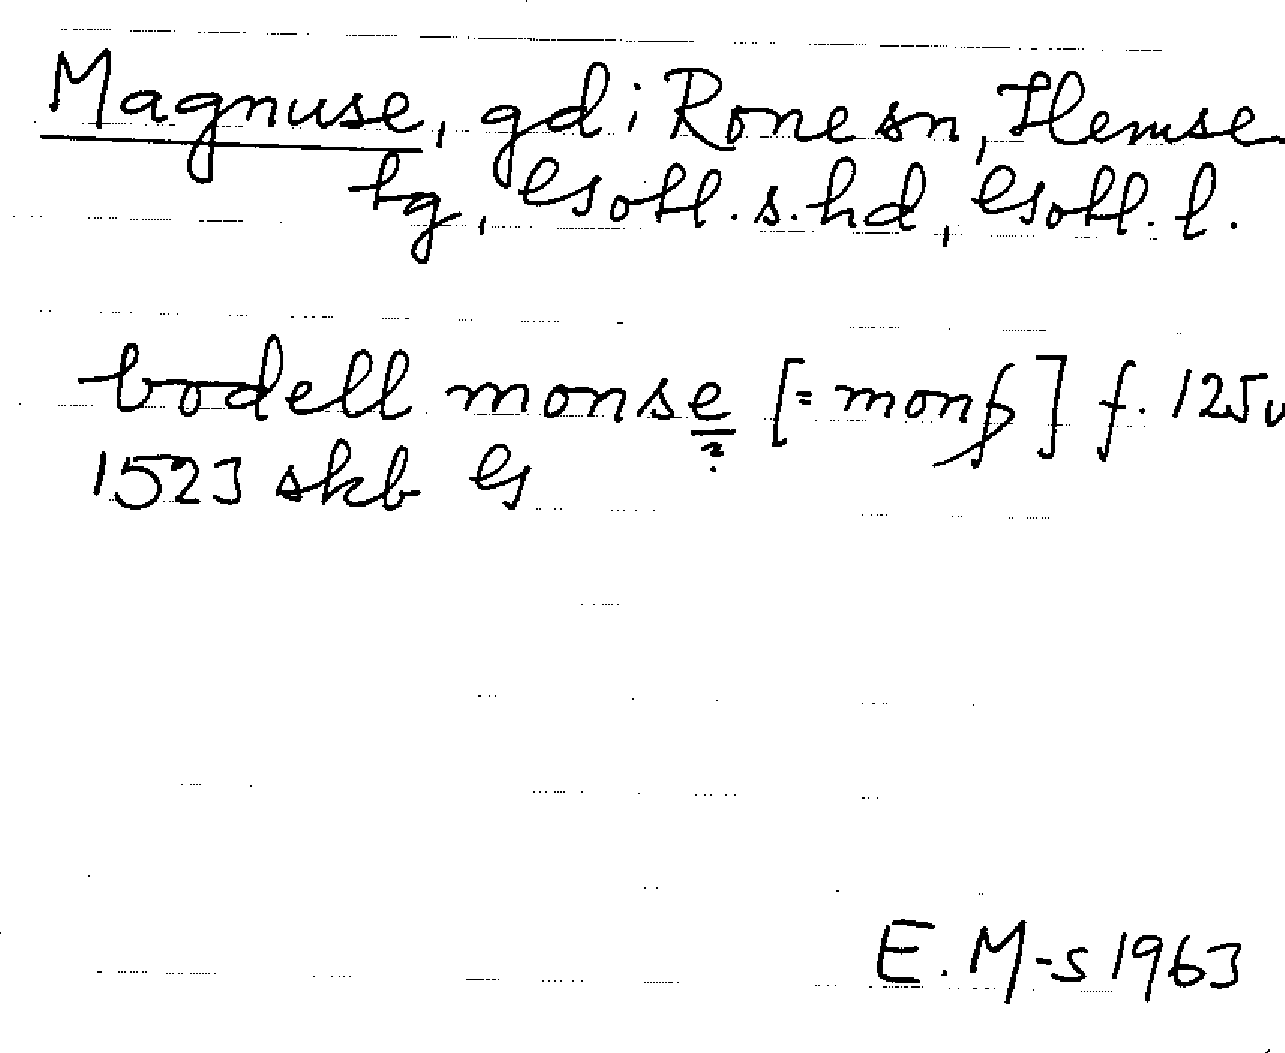 Magnuse, gd i Rone sn, Hemse
tg, Gotl. s. hd, Gotl. l.
bodell monse [= monſ] f. 125v
?
1523 skb G
E. M-s 1963